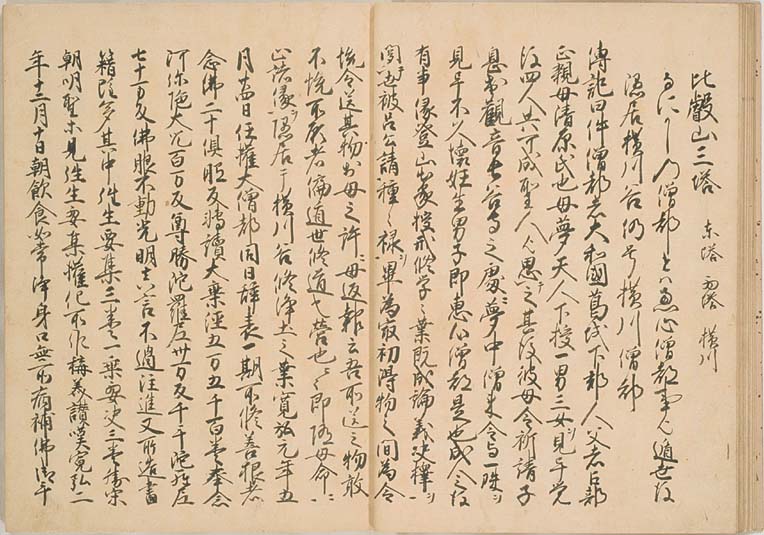 比叡山三塔 東塔 西塔 横川
よにしの僧都とハ恵心僧都事也遁世後
隠居横川谷仍号横川僧都
傳記曰件僧都者大和國葛城下郡人父者占部
正親母清原氏也母夢天人下授一男三女見乎覚
後四人共可成聖人也思之其後彼母令祈請子
息於觀音長谷寺之處夢中僧来令与一珠
見乎不久懐妊生男子即惠心僧都是也成人之後
有事縁登山出家授戒修学之業既成論義決擇
間被召公請種々禄畢為最初得物之間為令
悦令送其物於母之許母返報云吾所送之物敢
不悦不死者偏遁世修道之營也即随母命
此諸縁隠居于横川谷修浄土之業寛弘元年五
月十四日任權大僧都同日辞表一期所修善根者
念佛二十倶胝反轉讀大乗経五万五千百巻奉念
阿弥陀大咒百万反尊勝陀羅尼卅万反千手陀羅尼
七十万反佛眼不動光明真言不遑注進又所造書
籍随多其中往生要集三巻一乗要決三巻
朝明聖等見往生要集權化所作構義讃嘆寛弘二
年十二月十日朝飲食如常浄身口無所病補佛御手